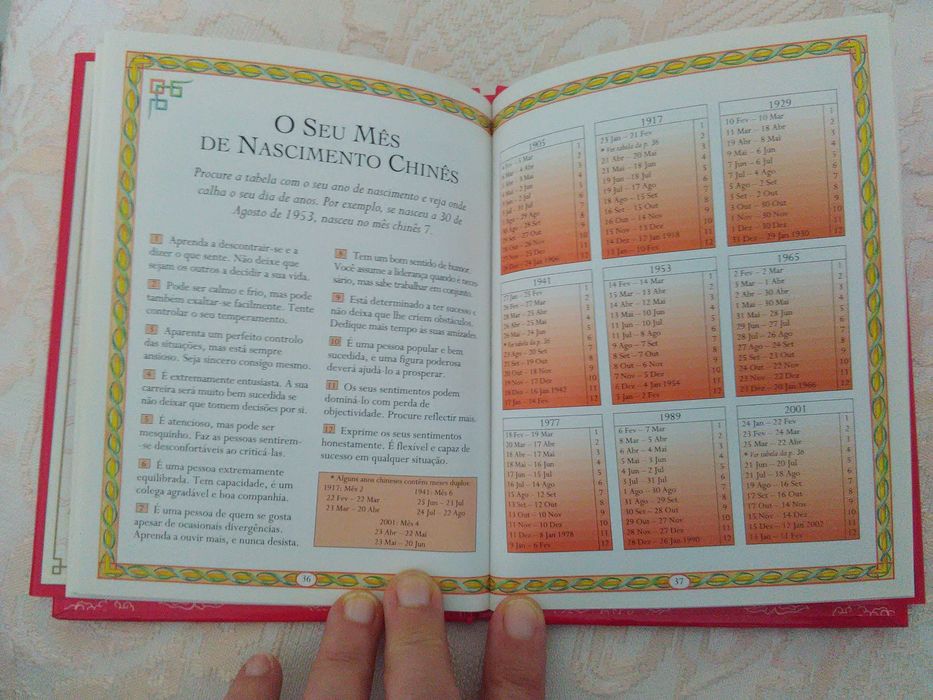 O SEU MÊS
DE NASCIMENTO CHINÊS
Procure a tabela com o seu ano de nascimento e veja onde
calha o seu dia de anos. Por exemplo, se nasceu a 30 de
Agosto de 1953, nasceu no mês chinês 7.
1 Aprenda a descontrair-se e a
dizer o que sente. Não deixe que
sejam os outros a decidir a sua vida.
2 Pode ser calmo e frio, mas pode
também exaltar-se facilmente. Tente
controlar o seu temperamento.
3 Aparenta um perfeito controlo
das situações, mas está sempre
ansioso. Seja sincero consigo mesmo.
4 É extremamente entusiasta. A sua
carreira será muito bem sucedida se
não deixar que tomem decisões por si.
5 É atencioso, mas pode ser
mesquinho. Faz as pessoas sentirem-
-se desconfortáveis ao criticá-las.
6 É uma pessoa extremamente
equilibrada. Tem capacidade, é um
colega agradável e boa companhia.
7 É uma pessoa de quem se gosta
apesar de ocasionais divergências.
Aprenda a ouvir mais, e nunca desista.
8 Tem um bom sentido de humor.
Você assume a liderança quando é neces-
sário, mas sabe trabalhar em conjunto.
9 Está determinado a ter sucesso e
não deixa que lhe criem obstáculos.
Dedique mais tempo às suas amizades.
10 É uma pessoa popular e bem
sucedida, e uma figura poderosa
deverá ajudá-lo a prosperar.
11 Os seus sentimentos podem
dominá-lo com perda de
objectividade. Procure reflectir mais.
12 Exprime os seus sentimentos
honestamente. É flexível e capaz de
sucesso em qualquer situação.
* Alguns anos chineses contêm meses duplos
1917: Mês 2
22 Fev – 22 Mar
23 Mar – 20 Abr
1941: Mês 6
25 Jun – 23 Jul
24 Jul – 22 Ago
2001: Mês 4
23 Abr – 22 Mai
23 Mai – 20 Jun
36
1905
1
2
3
4
5
6
7
8
9
10
11
12
1917
23 Jan – 21 Fev 1
* Ver tabela da p. 36 2
21 Abr – 20 Mai 3
21 Mai – 18 Jun 4
19 Jun – 18 Jul 5
19 Jul – 17 Ago 6
18 Ago – 15 Set 7
16 Set – 15 Out 8
16 Out – 14 Nov 9
15 Nov – 13 Dez 10
14 Dez – 12 Jan 1918 11
12
1929
10 Fev – 10 Mar 1
11 Mar – 18 Abr 2
19 Abr – 8 Mai 3
9 Mai – 6 Jun 4
7 Jun – 6 Jul 5
7 Jul – 4 Ago 6
5 Ago – 2 Set 7
3 Out – 30 Out 9
1 Nov – 30 Nov 10
1 Dez – 30 Dez 11
31 Dez – 29 Jan 1930 12
1941
27 Jan – 25 Fev 1
26 Fev – 27 Mar 2
28 Mar – 25 Abr 3
26 Abr – 25 Mai 4
26 Mai – 24 Jun 5
* Ver tabela da p. 36 6
23 Ago – 20 Set 7
21 Set – 19 Out 8
20 Out – 18 Nov 9
19 Nov – 17 Dez 10
18 Dez – 16 Jan 1942 11
17 Jan – 14 Fev 12
1953
14 Fev – 14 Mar 1
15 Mar – 13 Abr 2
14 Abr – 12 Mai 3
13 Mai – 10 Jun 4
11 Jun – 10 Jul 5
11 Jul – 9 Ago 6
10 Ago – 7 Set 7
8 Set – 7 Out 8
8 Out – 6 Nov 9
7 Nov – 5 Dez 10
6 Dez – 4 Jan 1954 11
5 Jan – 2 Fev 12
1965
2 Fev – 2 Mar 1
3 Mar – 1 Abr 2
2 Abr – 30 Abr 3
1 Mai – 30 Mai 4
31 Mai – 28 Jun 5
29 Jun – 27 Jul 6
28 Jul – 26 Ago 7
27 Ago – 24 Set 8
25 Set – 23 Out 9
24 Out – 22 Nov 10
23 Nov – 22 Dez 11
23 Dez – 20 Jan 1966 12
1977
18 Fev – 19 Mar 1
20 Mar – 17 Abr 2
18 Abr – 17 Mai 3
18 Mai – 16 Jun 4
17 Jun – 15 Jul 5
16 Jul – 14 Ago 6
15 Ago – 12 Set 7
13 Set – 12 Out 8
13 Out – 10 Nov 9
11 Nov – 10 Dez 10
11 Dez – 8 Jan 1978 11
9 Jan – 6 Fev 12
1989
6 Fev – 7 Mar 1
8 Mar – 5 Abr 2
6 Abr – 4 Mai 3
5 Mai – 3 Jun 4
4 Jun – 2 Jul 5
3 Jul – 31 Jul 6
1 Ago – 30 Ago 7
31 Ago – 29 Set 8
30 Set – 28 Out 9
29 Out – 27 Nov 10
28 Nov – 27 Dez 11
28 Dez – 26 Jan 1990 12
2001
24 Jan – 22 Fev 1
23 Fev – 24 Mar 2
25 Mar – 22 Abr 3
* Ver tabela da p. 36 4
21 Jun – 20 Jul 5
21 Jul – 18 Ago 6
19 Ago – 16 Set 7
17 Set – 16 Out 8
17 Out – 14 Nov 9
15 Nov – 14 Dez 10
15 Dez – 12 Jan 2002 11
13 Jan – 11 Fev 12
37